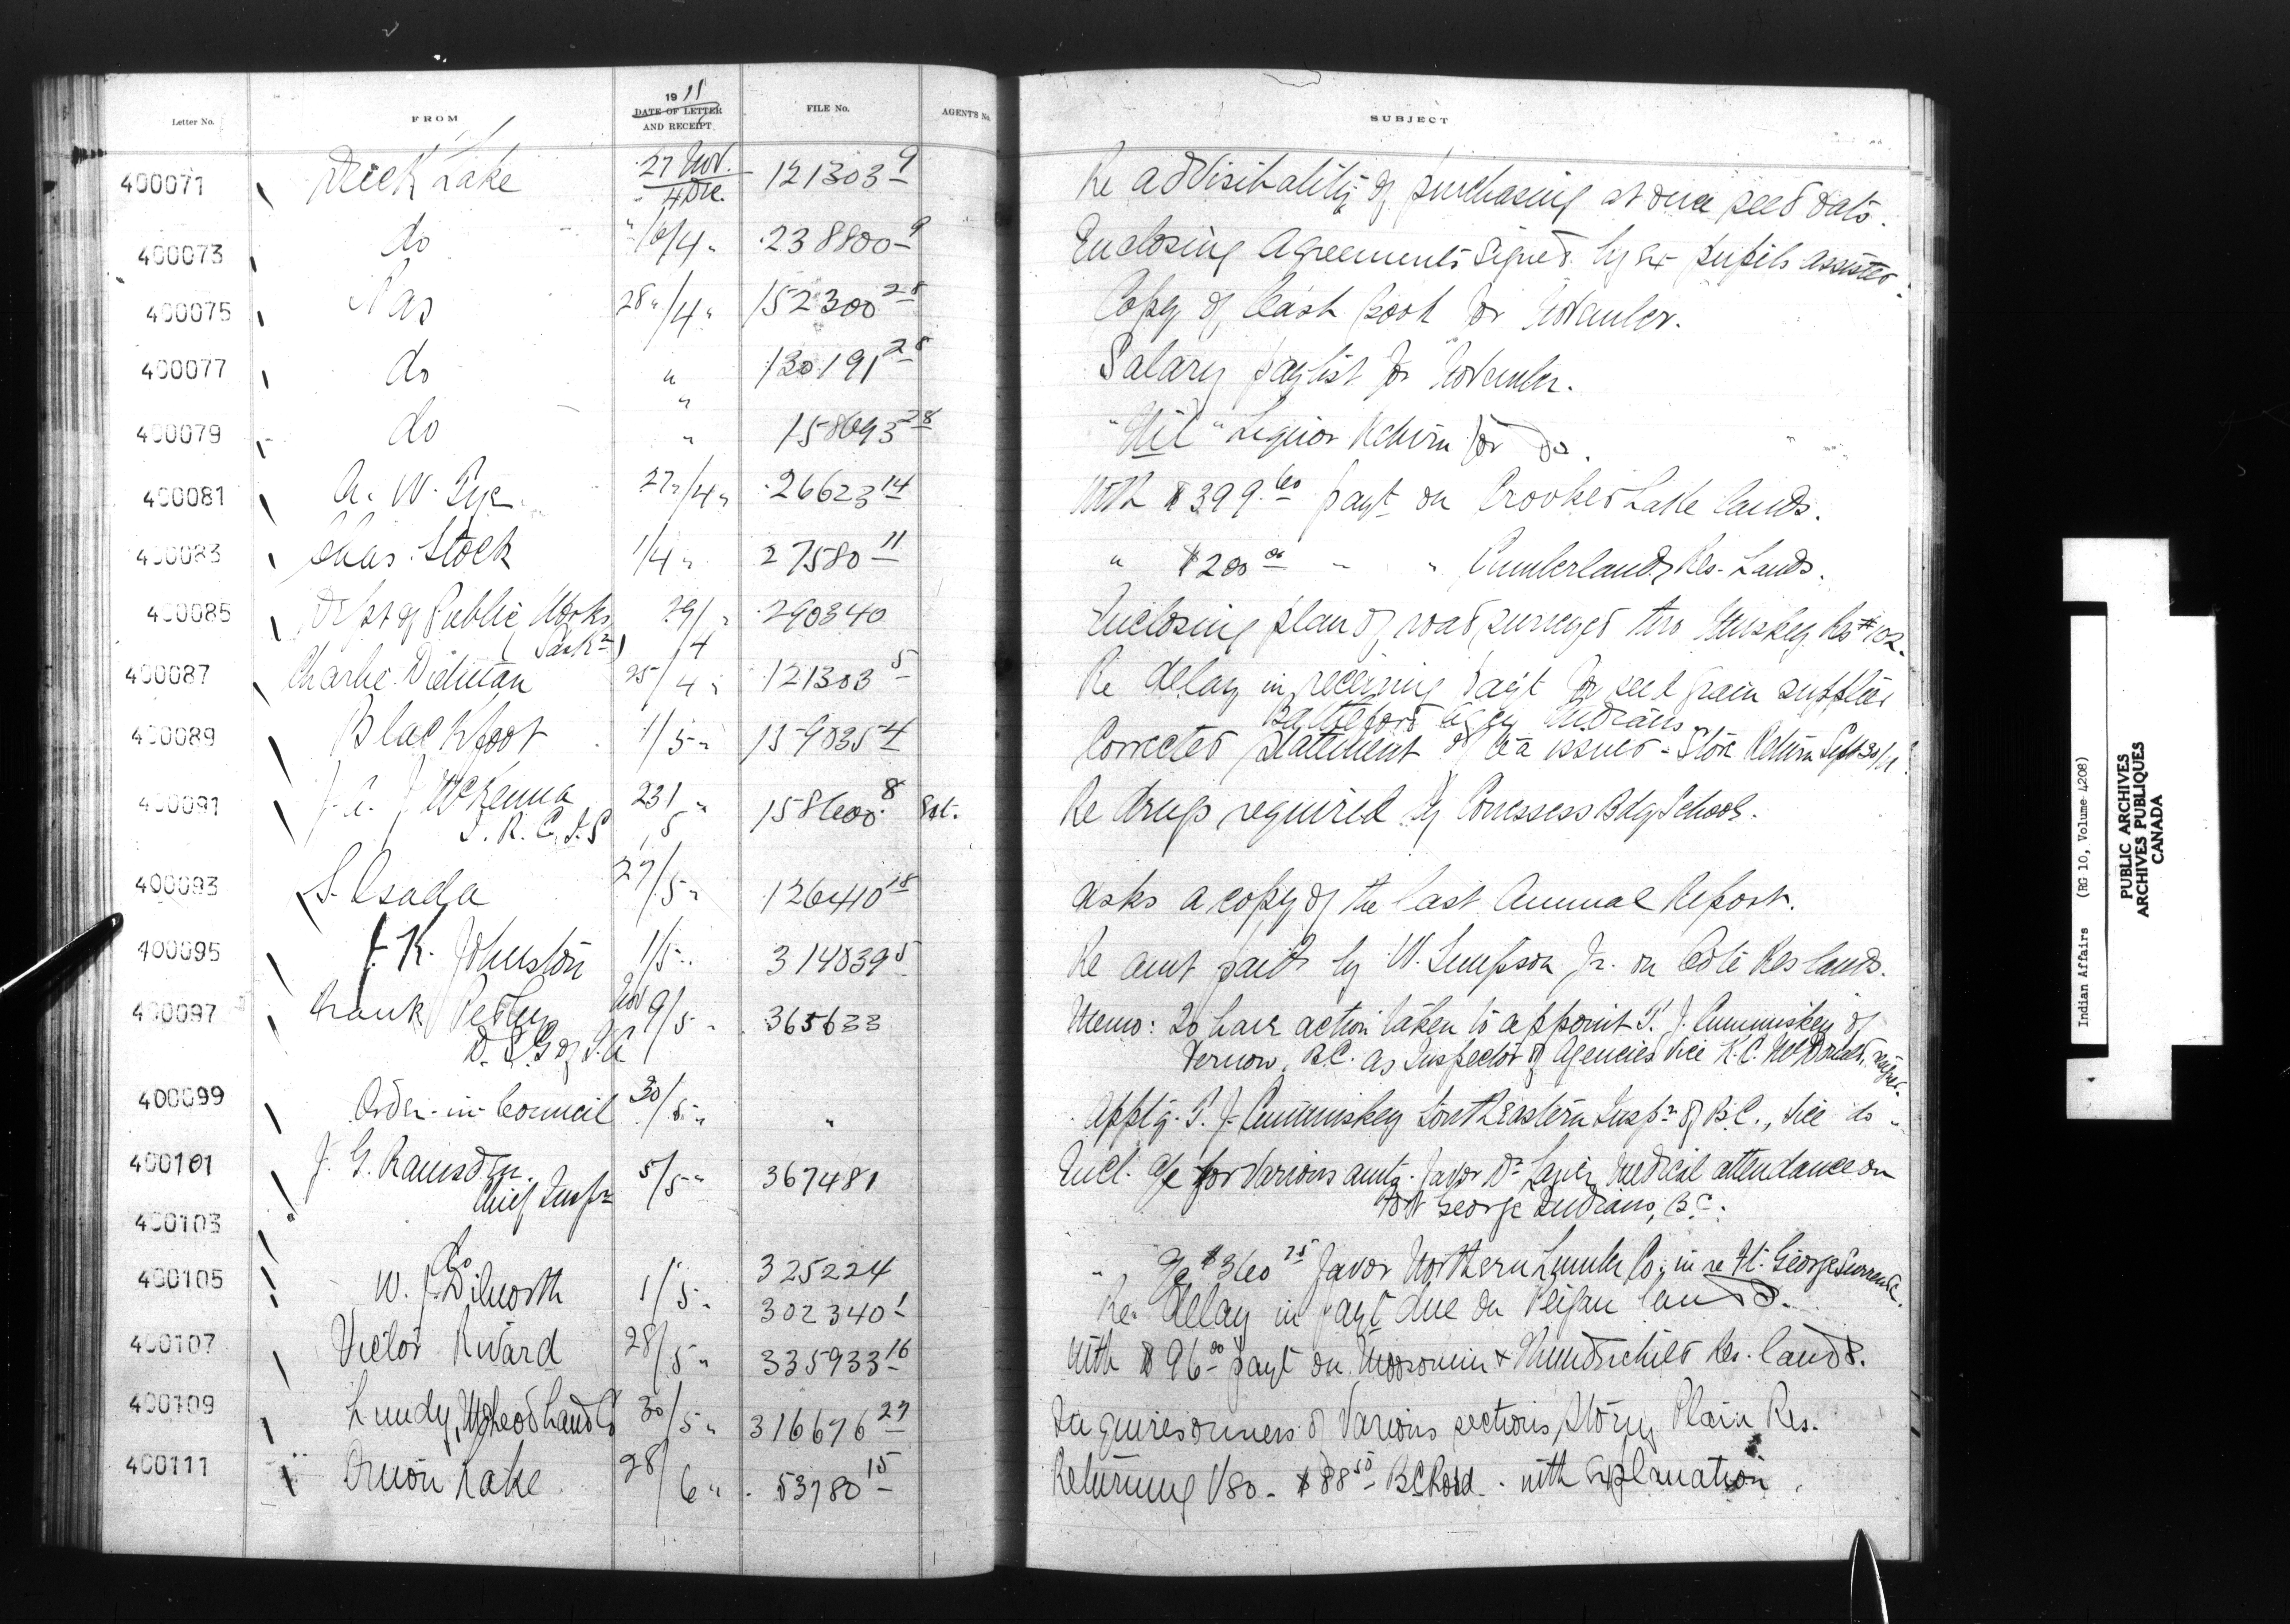 Letter No. FROM 1911 DATE OF LETTER AND RECEIPT FILE No. AGENT'S No. SUBJECT
400071 Duck Lake 27 Nov. 4 Dec. 121303 9 Re advisibality of purchasing at once seed oats.
400073 do 238800 9 Enclosing Agreements signed by ex pupils assisted.
400075 Pas 28 "/4 " 152300 28 Copy of Cash book for November.
400077 do " 130191 28 Salary paylist for November.
"
400079 do " 158693 28 "Nil" Liquor Return for do.
400081 A. W. Pye 27 "/4 " 26623 14 With $399.60 payt on Crooked Lake lands.
400083 Chas. Stock 1/4 " 27580 11 " $200.00 " " Cumberland Res. Lands.
400085 Dept of Public Works (Sask.) 29/4 " 290340 Enclosing plan of road surveyed thro Res #102.
400087 Charlie 25/4 " 121303 5 Re delay in receiving payt for seed grain supplied
Battleford Agcy Indians
400089 Blackfoot 1/5 " 159035 4 Corrected statement of tea issued - Store Return Sept 30/11
400091 J. A. J. McKenna 23/5 " 158600 8 Re drugs required by Cowessess Bdg School.
I. R. C. I. S
400093 S. Osada 27/5 " 126410 18 Asks a copy of the last Annual Report.
400095 J. K. Johnston 1/5 " 314039 5 Re amt paid by W. Simpson Jr. on Cote Res lands.
400097 Frank Pedley Nov 9/5 " 365633 Memo: To have action taken to appoint T. J. Cummiskey of
D. S. G. of I. A Vernon, B.C. as Inspector of Agencies vice K. C. McDonald, resigned.
400099 Order-in-Council 30/5 " " Apptg. T. J. Cummiskey South Eastern Inspr of B.C., vice do "
400101 J. G. Ramsden 5/5 " 367481 Encl. a/c for various amts. favor Dr Lazier medical attendance on
Chief Inspr Fort George Indians, B.C.
400103 do 325224 " a/c $360 75 favor Northern Lumber Co. in re Ft. George Surrender.
400105 W. J. Dilworth 1/5 " 302340 1 Re. delay in payt due on Peigan lands.
400107 Victor Rivard 28/5 " 335933 16 With $96.00 payt on Moosomin & Thunderchild Res. lands.
400109 Lundy, McLeod Land Co 30/5 " 316676 27 Inquires owners of various sections, Stony Plain Res.
400111 Onion Lake 28/6 " 53780 15 Returning V80 - $88 50 - with explanation.
Indian Affairs (RG 10, Volume 4208)
PUBLIC ARCHIVES
ARCHIVES PUBLIQUES
CANADA